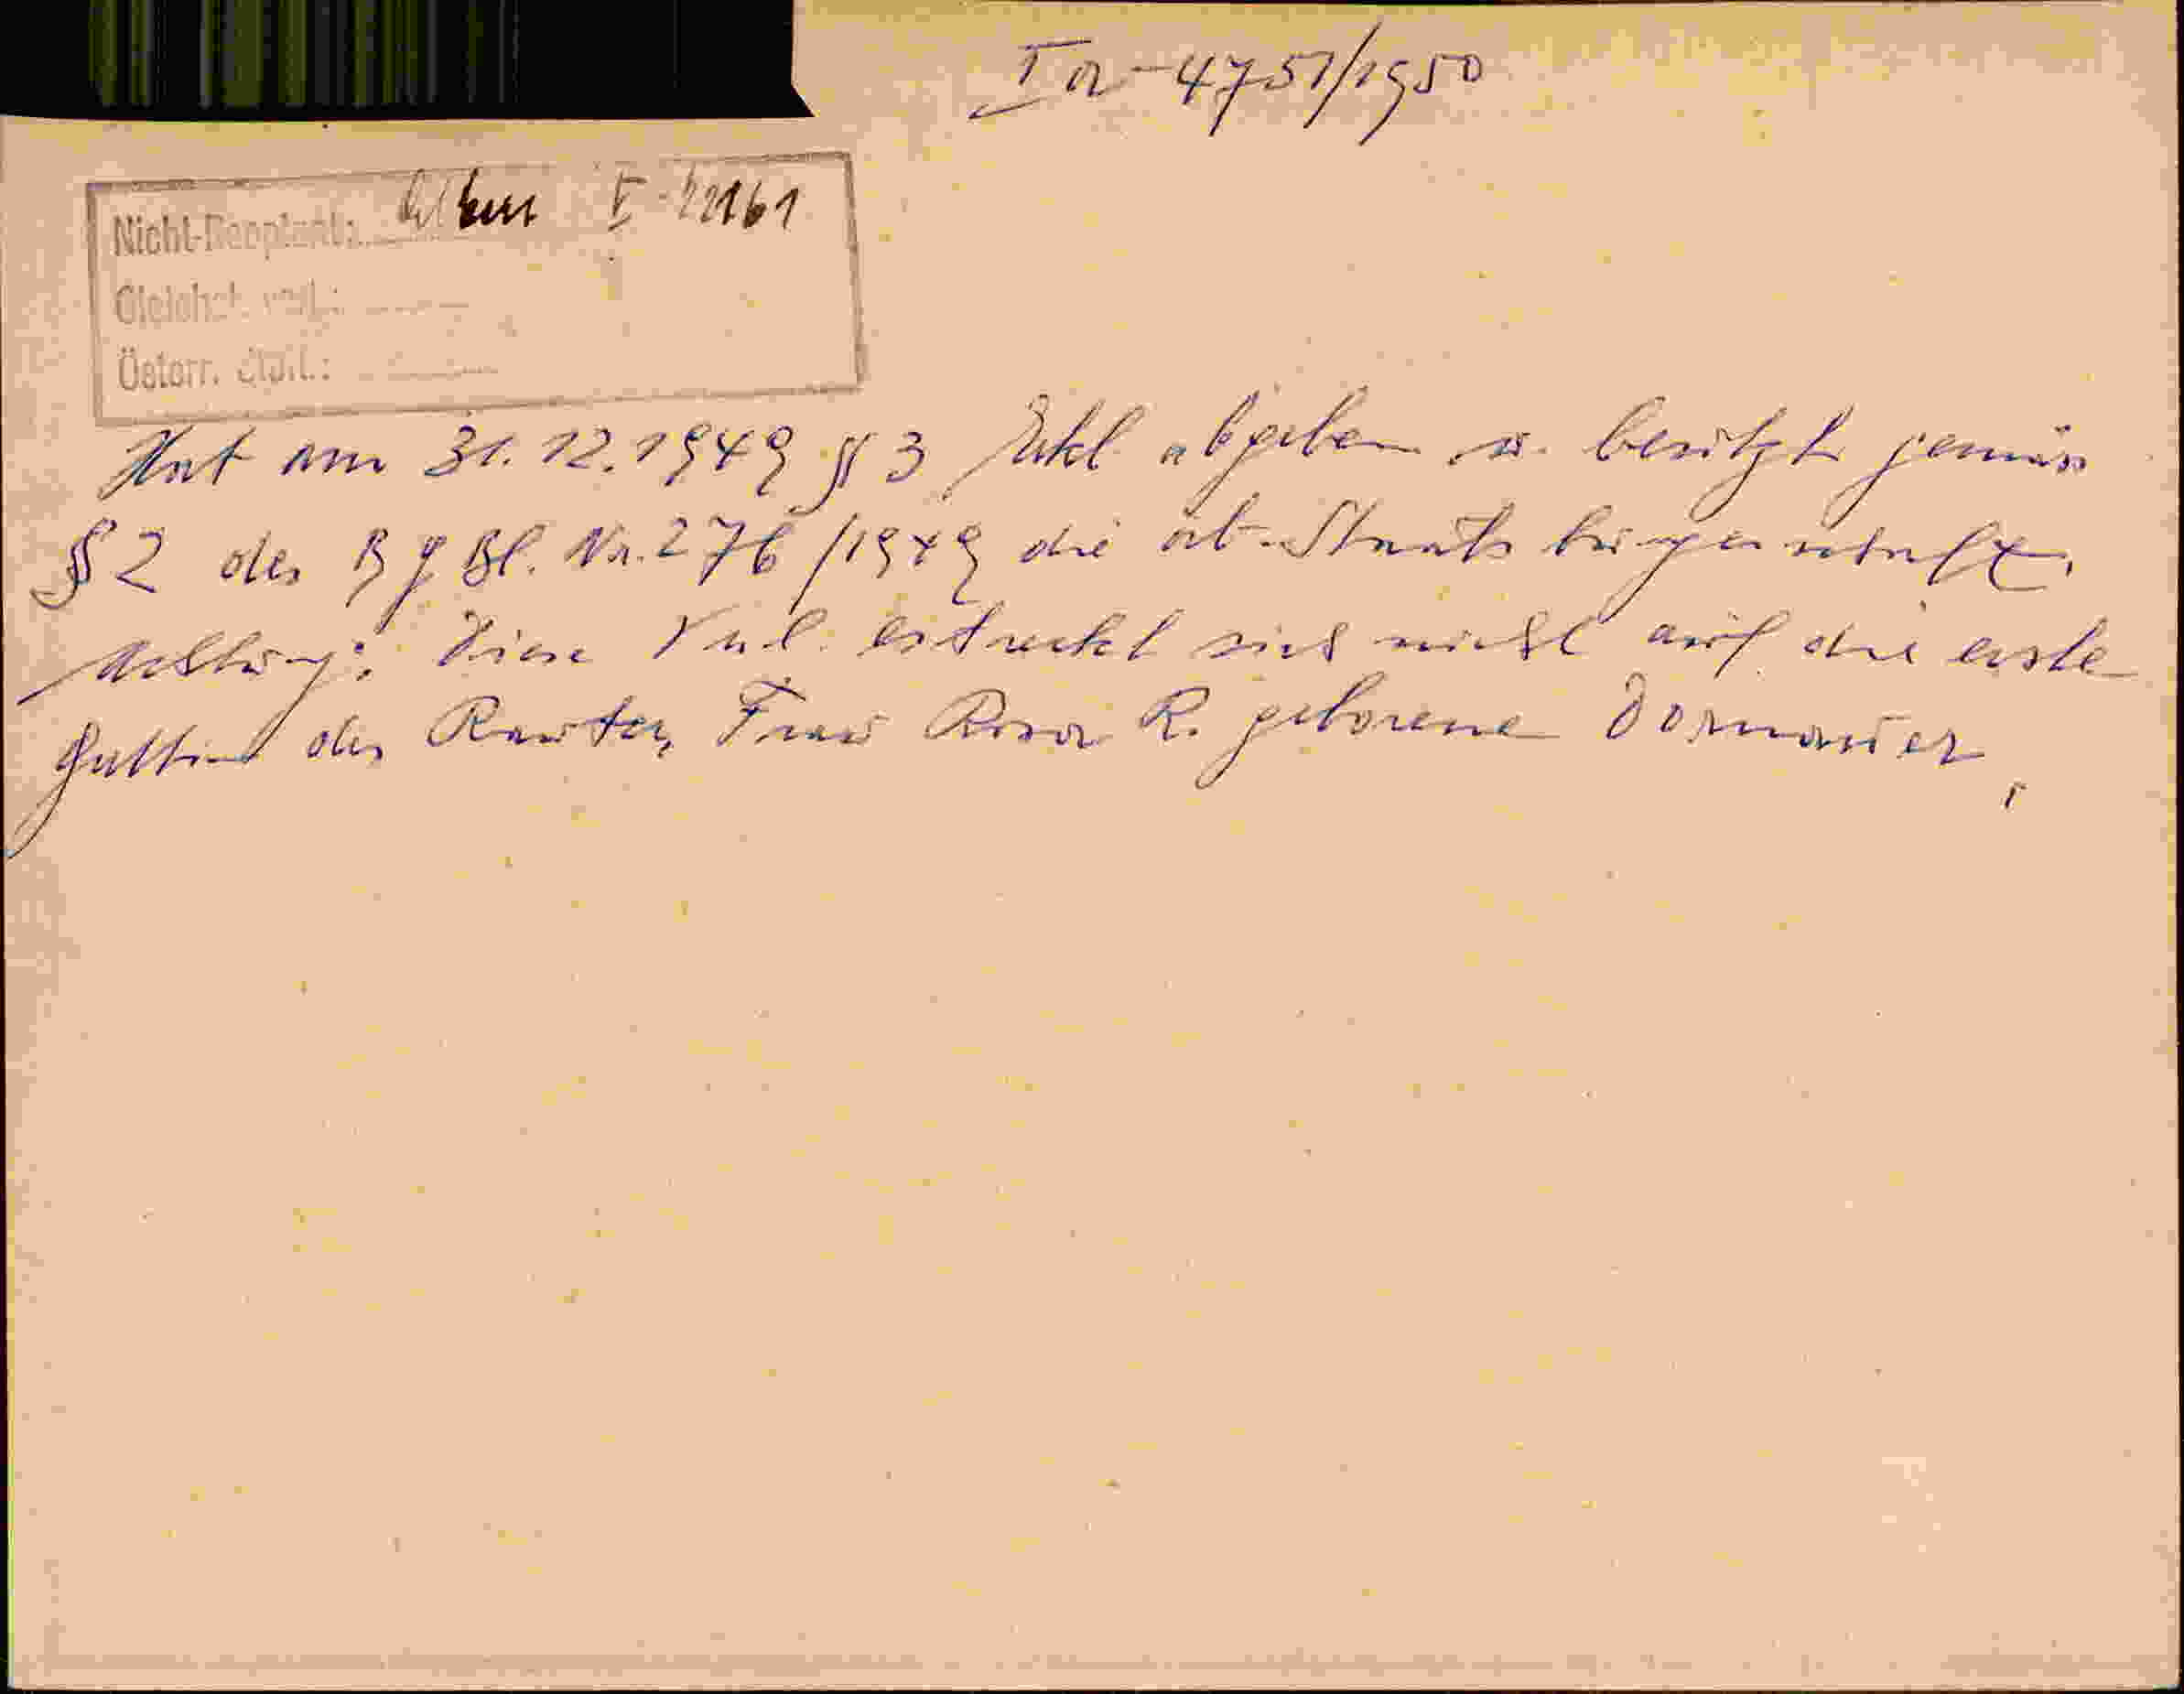 Ia-4751/1950
Nicht-Reoptant: V-22161
Gleichst. voll.:
Österr. Stbü.:
Hat am 31.12.1949 § 3 Erkl abgeben u. besitzt gemäss
§ 2 des BgBl. Nr. 276/1949 die öst. Staatsbürgerschaft.
Achtung: Diese erstreckt sich nicht auf die erste
Gattin des Rauter, Frau Rosa R. geborene Dormauer.